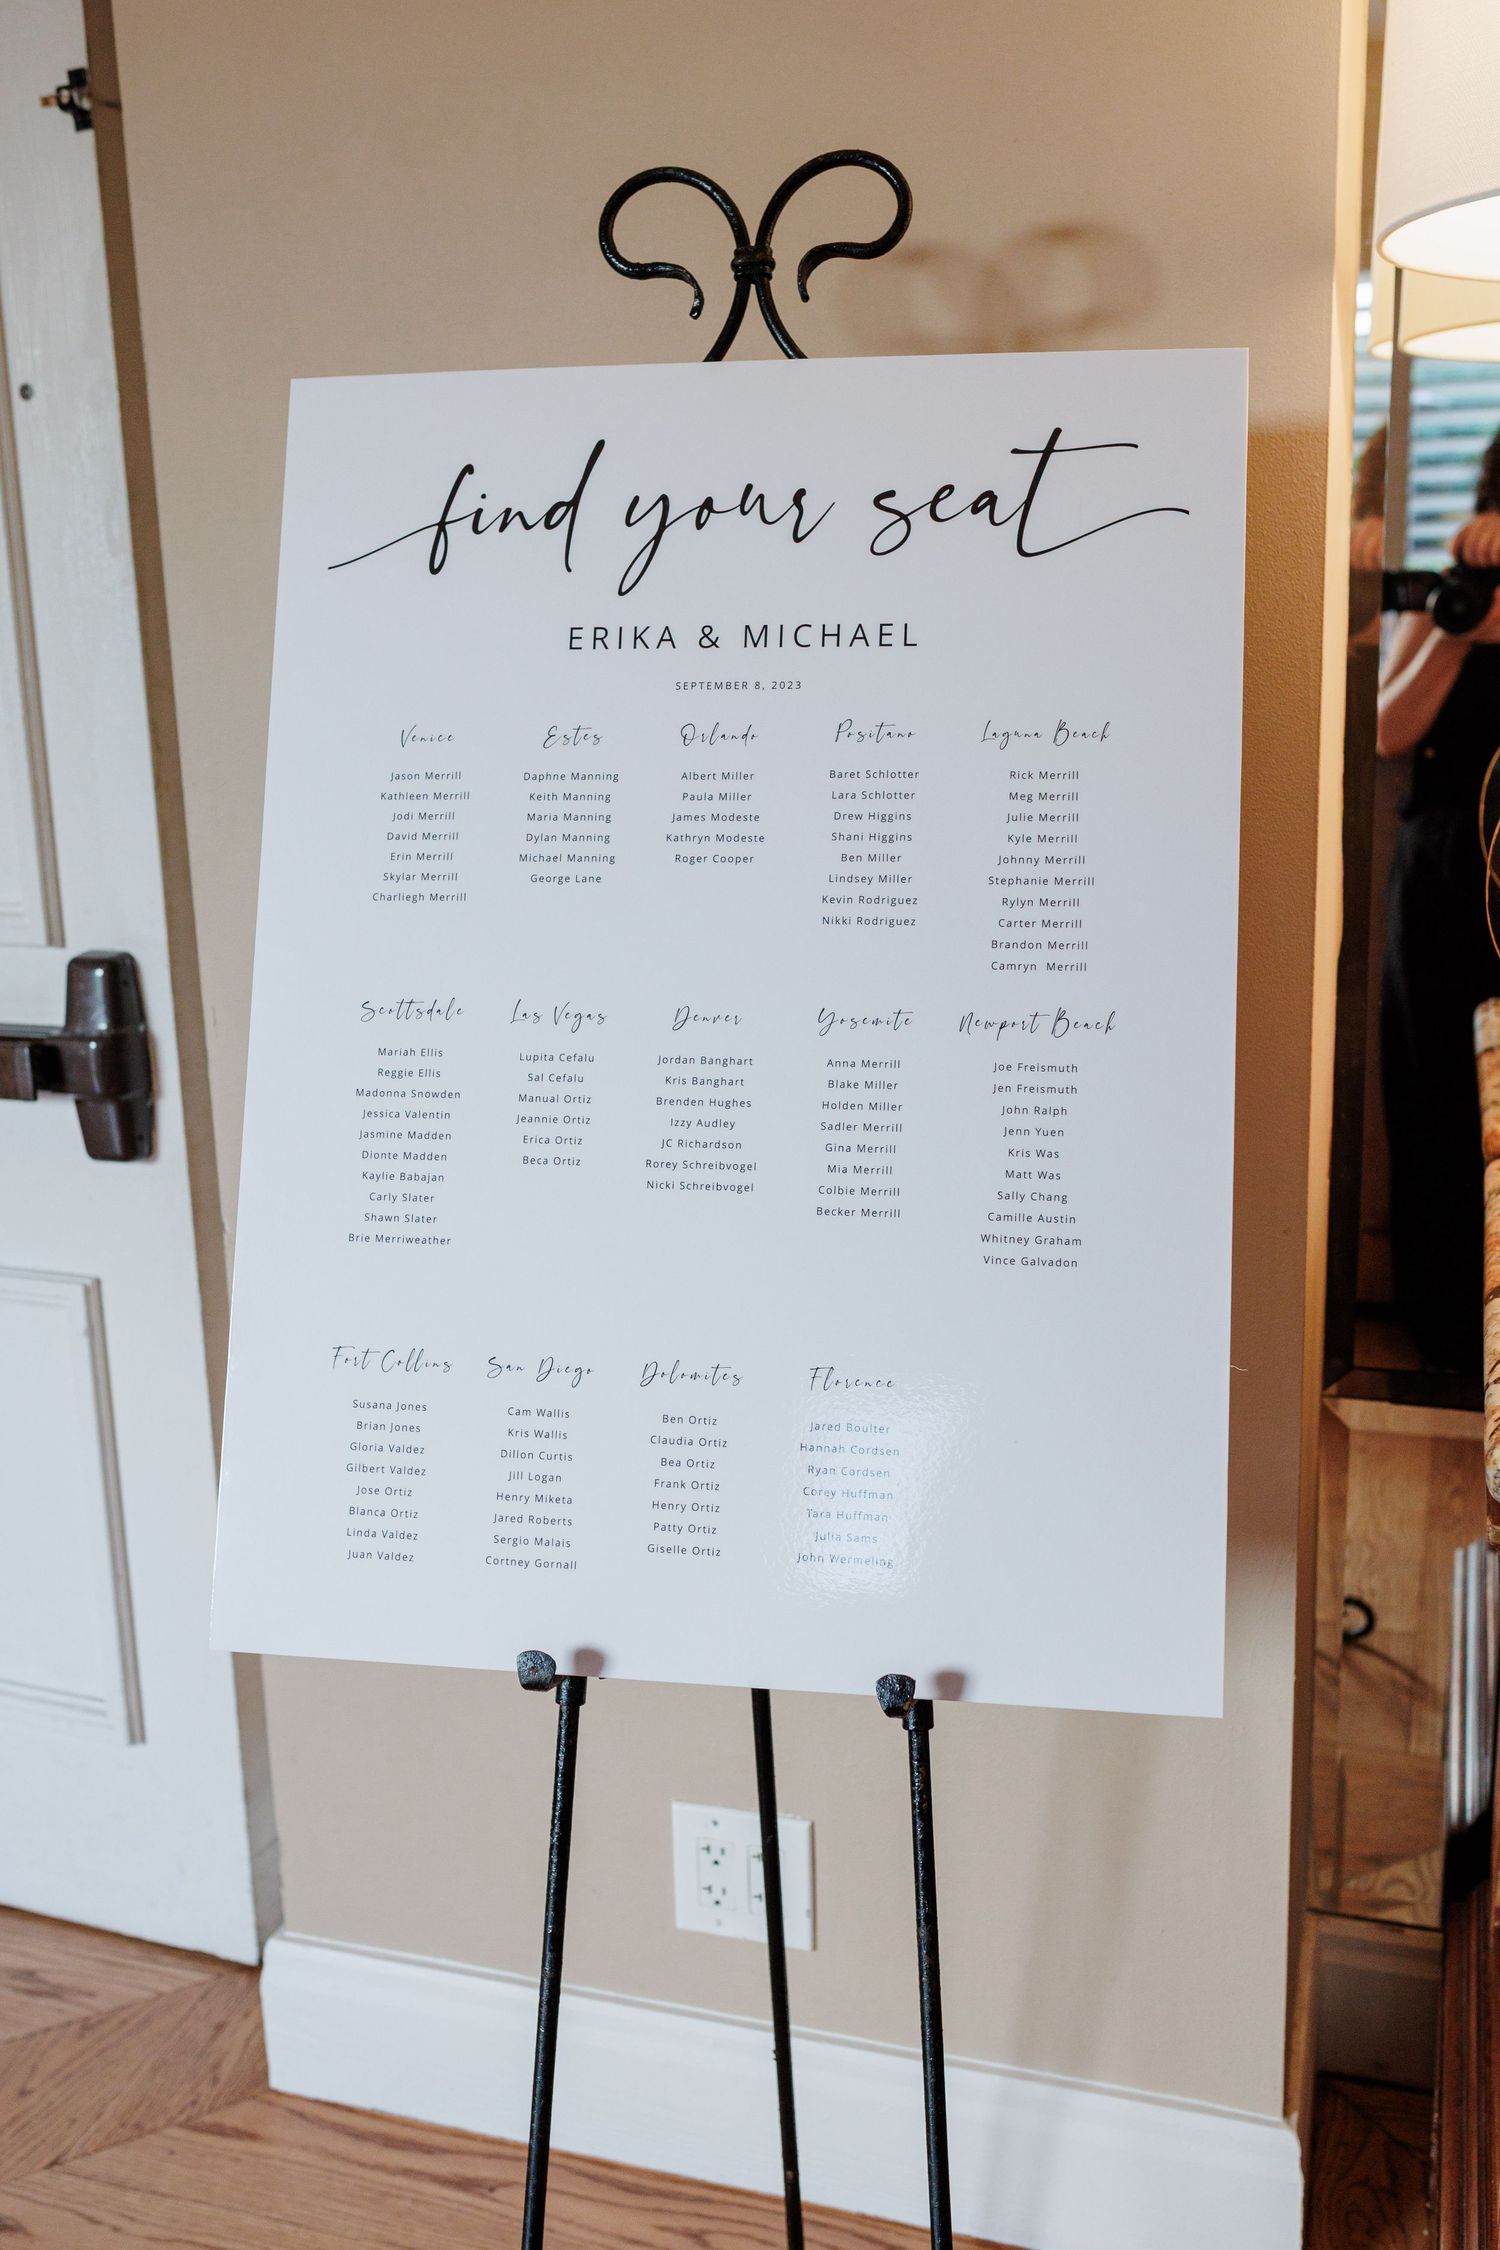 find your seat
ERIKA & MICHAEL
SEPTEMBER 8, 2023
Venice
Jason Merrill
Kathleen Merrill
Jodi Merrill
David Merrill
Erin Merrill
Skylar Merrill
Charliegh Merrill
Estes
Daphne Manning
Keith Manning
Maria Manning
Dylan Manning
Michael Manning
George Lane
Orlando
Albert Miller
Paula Miller
James Modeste
Kathryn Modeste
Roger Cooper
Positano
Baret Schlotter
Lara Schlotter
Drew Higgins
Shani Higgins
Ben Miller
Lindsey Miller
Kevin Rodriguez
Nikki Rodriguez
Laguna Beach
Rick Merrill
Meg Merrill
Julie Merrill
Kyle Merrill
Johnny Merrill
Stephanie Merrill
Rylyn Merrill
Carter Merrill
Brandon Merrill
Camryn Merrill
Scottsdale
Mariah Ellis
Reggie Ellis
Madonna Snowden
Jessica Valentin
Jasmine Madden
Dionte Madden
Kaylie Babajan
Carly Slater
Shawn Slater
Brie Merriweather
Las Vegas
Lupita Cefalu
Sal Cefalu
Manual Ortiz
Jeannie Ortiz
Erica Ortiz
Beca Ortiz
Denver
Jordan Banghart
Kris Banghart
Brenden Hughes
Izzy Audley
JC Richardson
Rorey Schreibvogel
Nicki Schreibvogel
Yosemite
Anna Merrill
Blake Miller
Holden Miller
Sadler Merrill
Gina Merrill
Mia Merrill
Colbie Merrill
Becker Merrill
Newport Beach
Joe Freismuth
Jen Freismuth
John Ralph
Jenn Yuen
Kris Was
Matt Was
Sally Chang
Camille Austin
Whitney Graham
Vince Galvadon
Fort Collins
Susana Jones
Brian Jones
Gloria Valdez
Gilbert Valdez
Jose Ortiz
Blanca Ortiz
Linda Valdez
Juan Valdez
San Diego
Cam Wallis
Kris Wallis
Dillon Curtis
Jill Logan
Henry Miketa
Jared Roberts
Sergio Malais
Cortney Gornall
Dolomites
Ben Ortiz
Claudia Ortiz
Bea Ortiz
Frank Ortiz
Henry Ortiz
Patty Ortiz
Giselle Ortiz
Florence
Jared Boulter
Hannah Cordsen
Ryan Cordsen
Corey Huffman
Tara Huffman
Julia Sams
John Wermeling